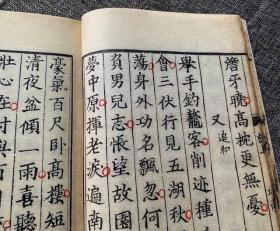 簷牙晴高枕更無憂
又追和
舉手釣龍客削迹種
會三伏行見五湖秋
蕩身外功名飄忽何
負男兒志悵望故園
夢中原揮老淚遍南
豪氣百尺卧高樓短
清夜盆傾一雨喜聽
壯心在